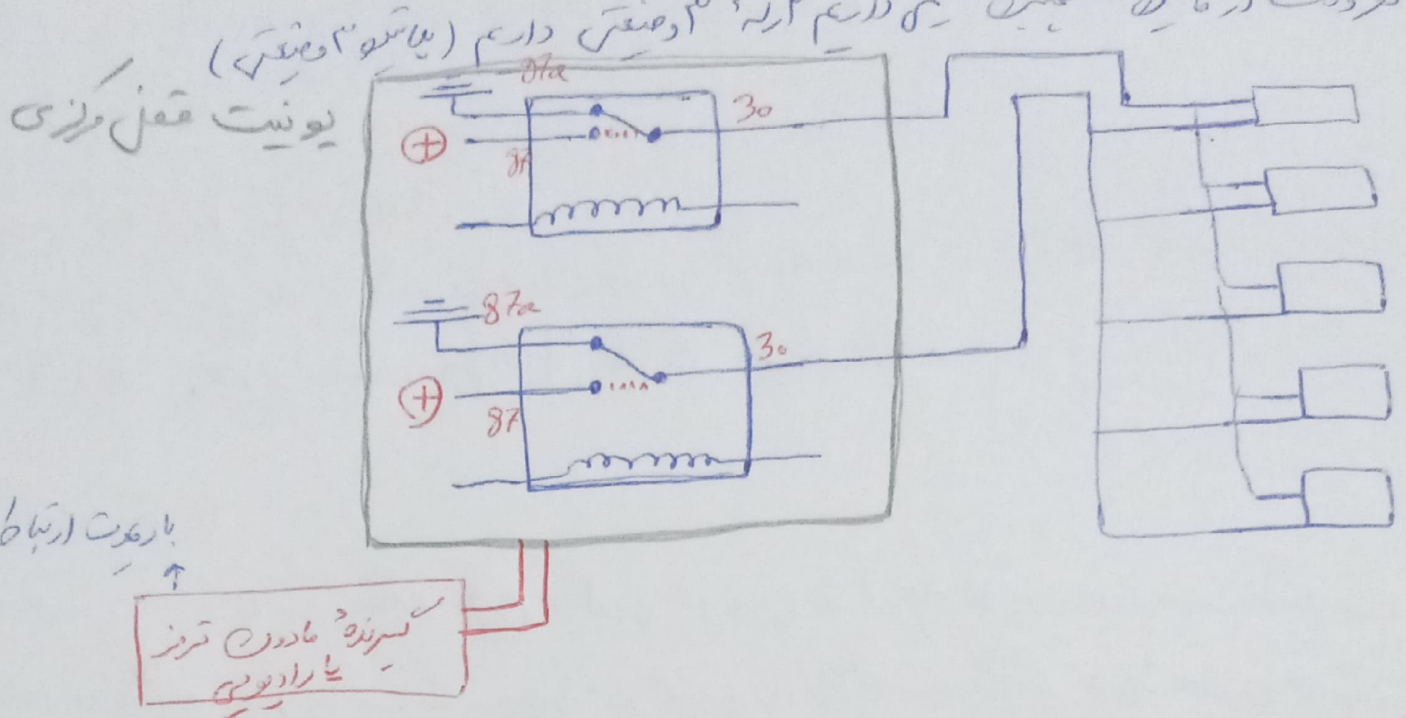 داریم ۲ رله ۳ وضعیتی داریم (
یونیت قفل مرکزی
87a
30
87
87a
30
87
با ریموت ارتباط
گیرنده مادون قرمز
یا رادیویی